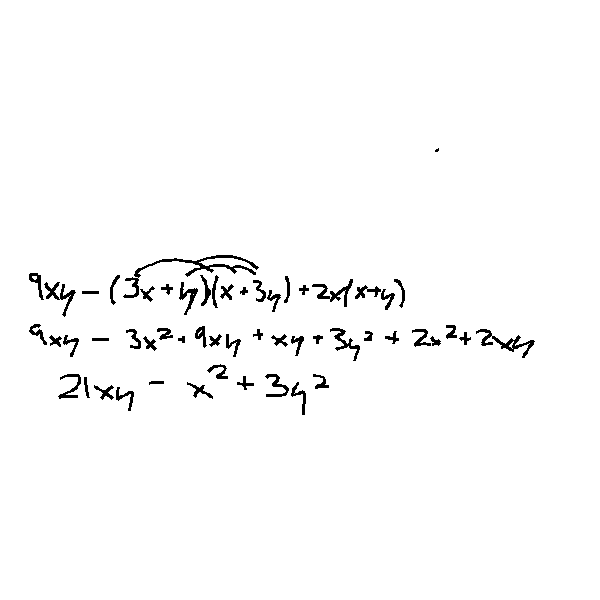 9xy - (3x + y)(x + 3y) + 2x(x+y)
9xy - 3x² + 9xy + xy + 3y² + 2x² + 2xy
21xy - x² + 3y²